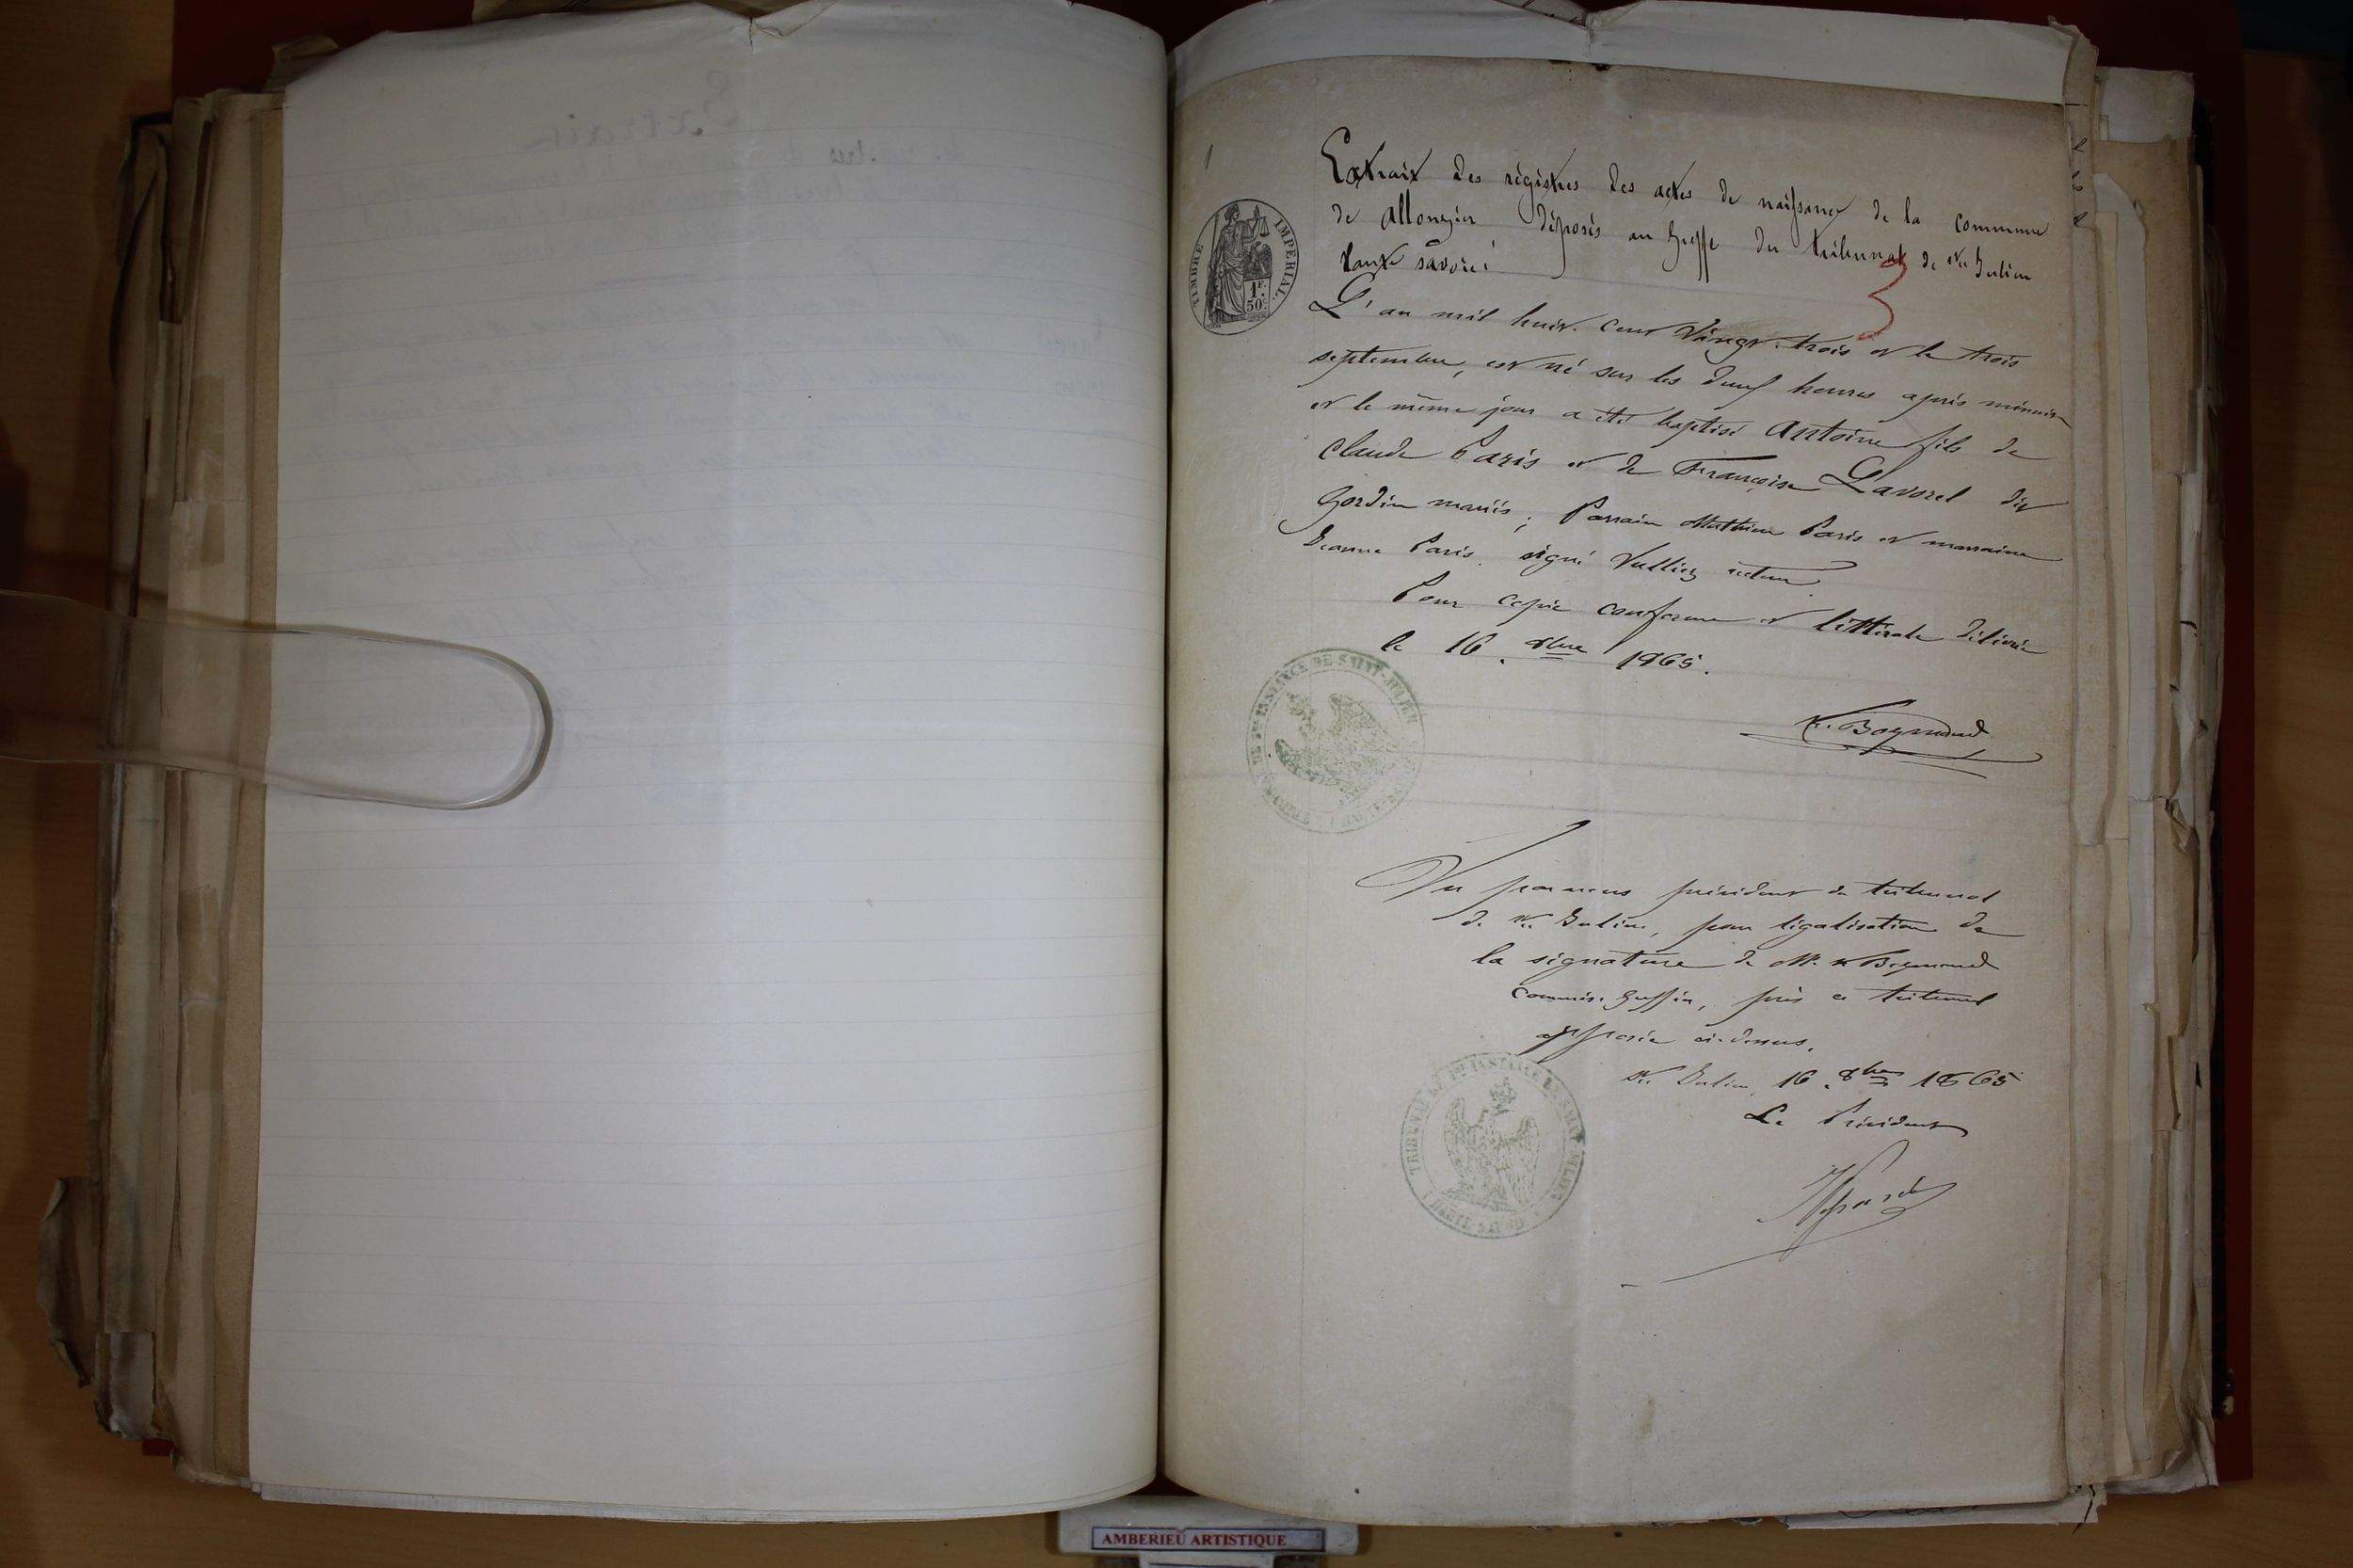 1
Extrait des régistres des actes de naissance de la commune
de Allonzier déposés au Greffe du tribunal de St Julien
haute savoie.
3
TIMBRE IMPERIAL.
1F. 50C.
L'an mil huit cent Vingt-trois et le trois
septembre, est né sur les deux heures après minuit
et le même jour a été baptisé Antoine fils de
Claude Paris et de Françoise Lavorel dit
Gordin mariés; Parrain Mathieu Paris et marraine
Jeanne Paris. signé Vulliez recteur.
Pour copie conforme et littérale délivrée
le 16. 8bre 1865.
Vu par nous président du tribunal
de St Julien, pour légalisation de
la signature de M.
commis. Greffier, près ce tribunal
apposée ci-dessus.
St Julien, 16. 8bre 1865
Le Président
TRIBUNAL DE 1re INSTANCE DE SAINT-JULIEN
HAUTE-SAVOIE
AMBERIEU ARTISTIQUE